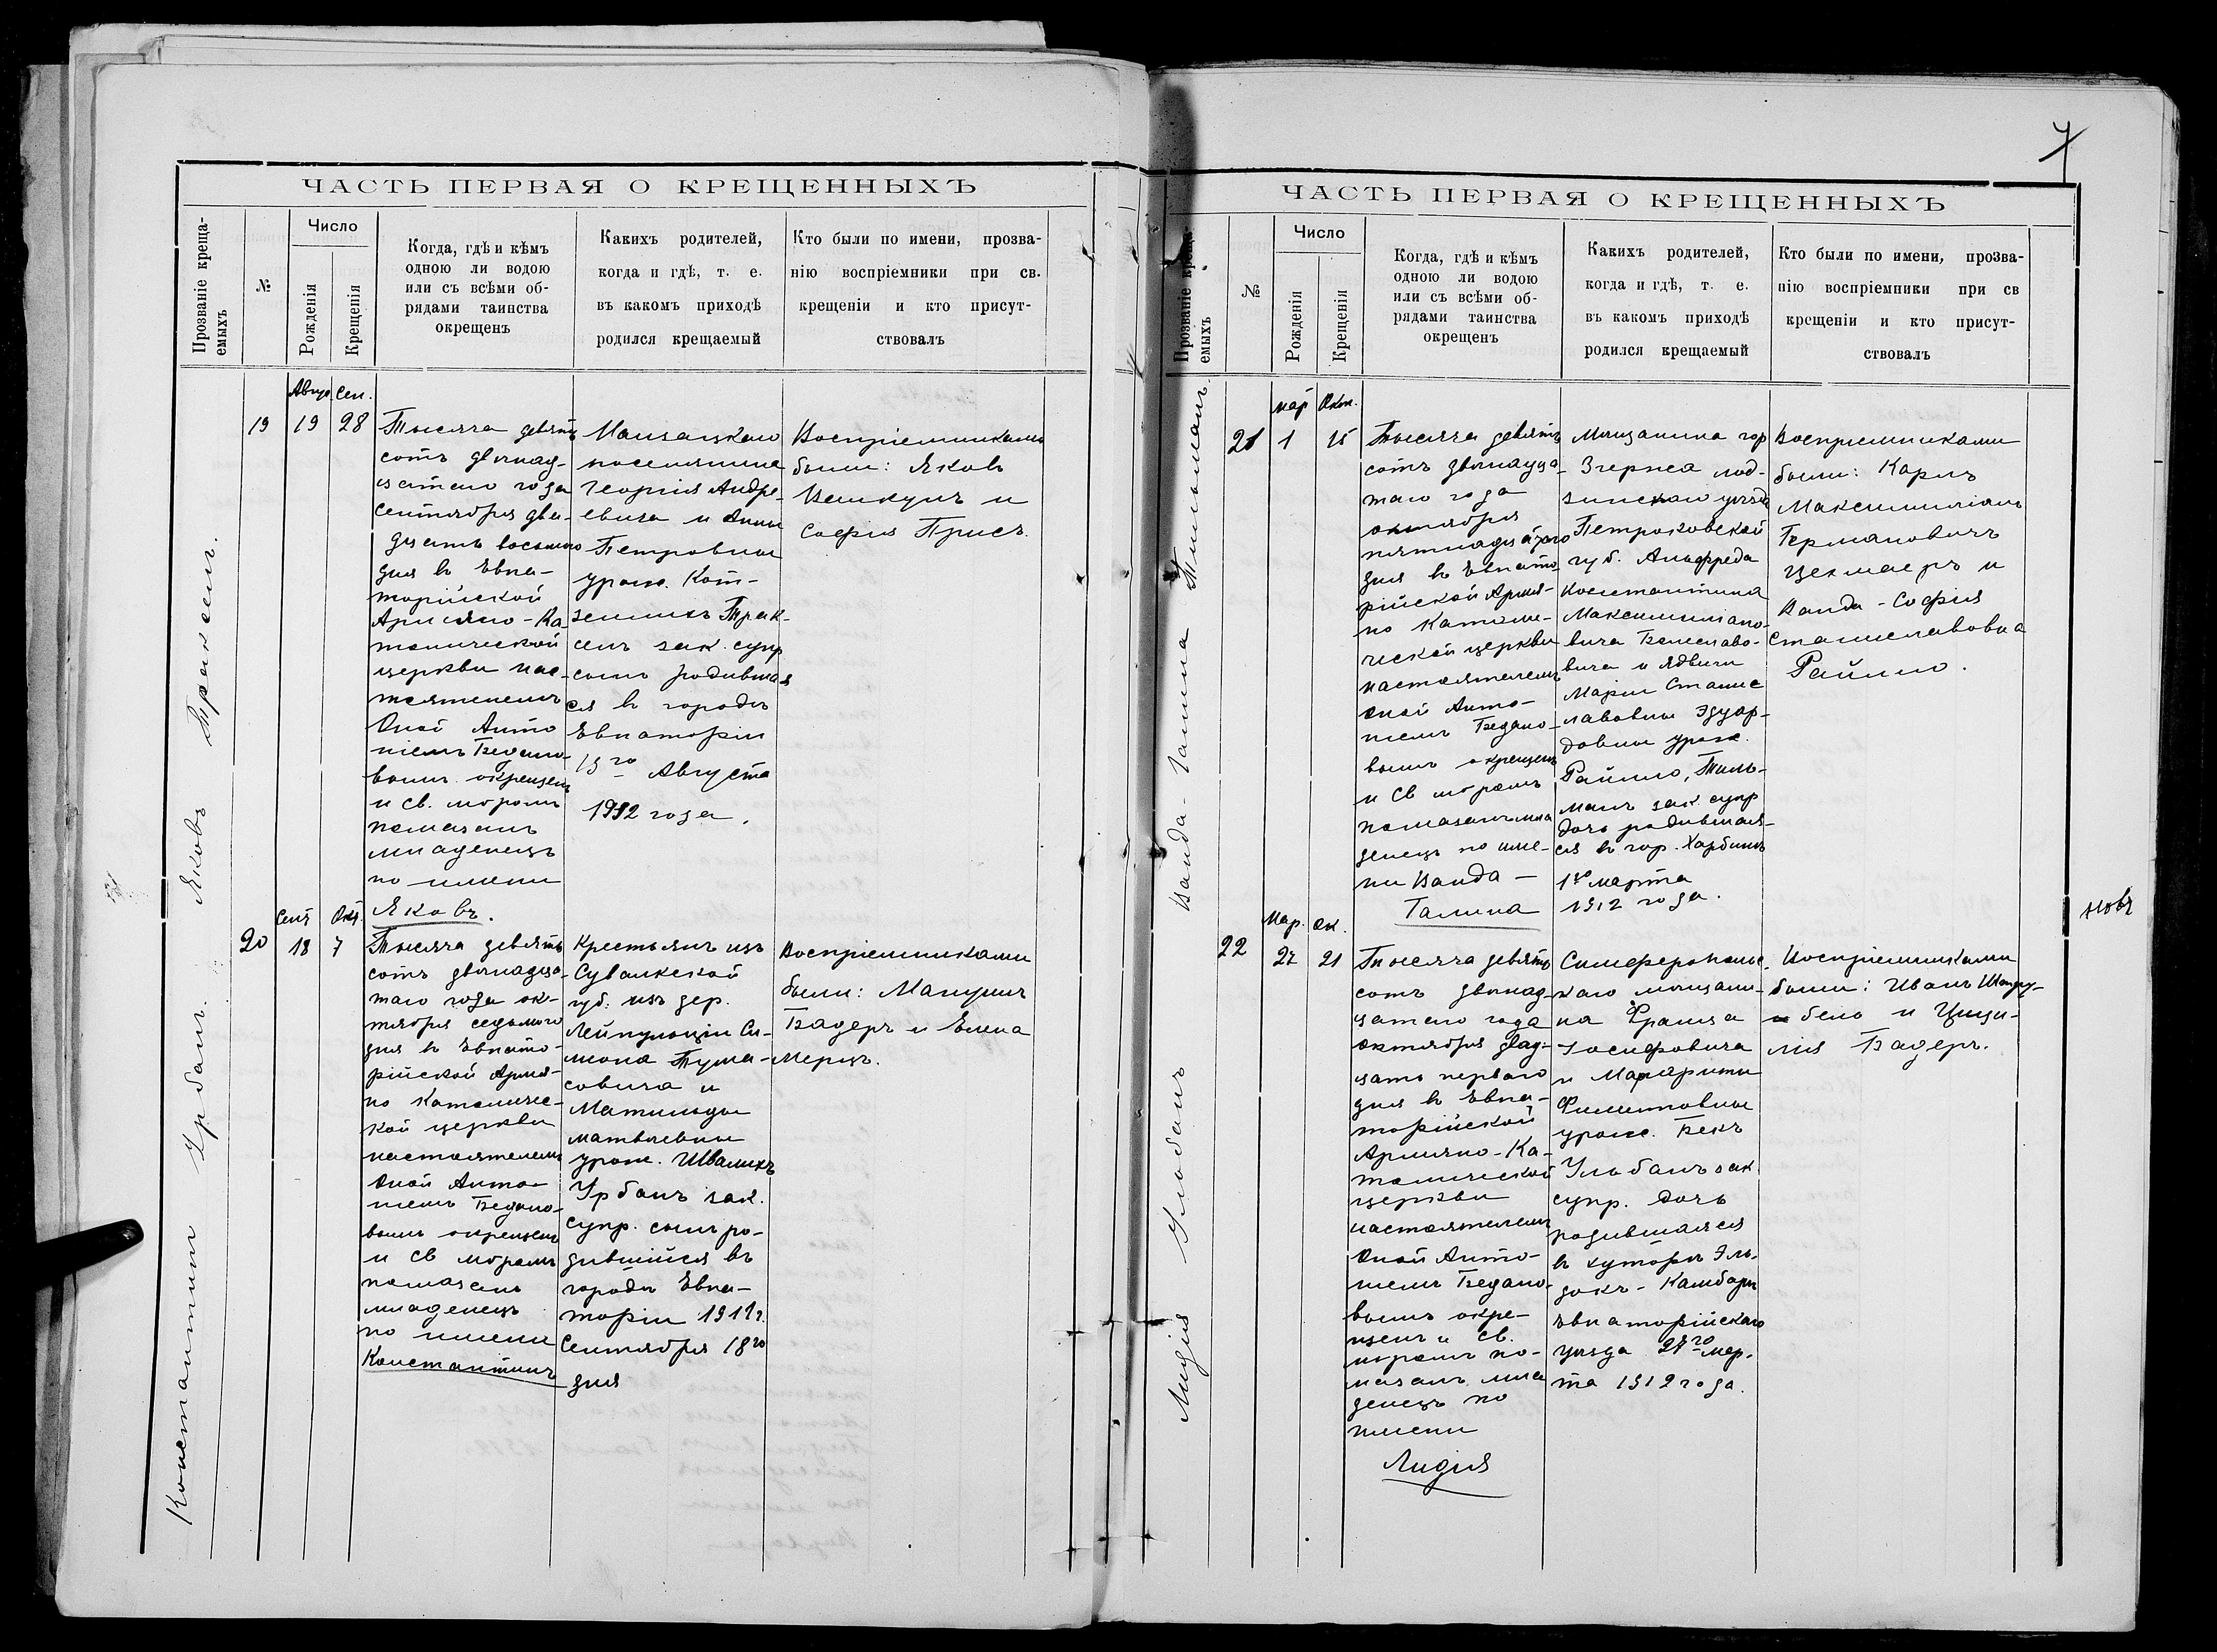 ЧАСТЬ ПЕРВАЯ О КРЕЩЕННЫХЪ
Прозваніе креща-
емыхъ
№
Число
Рожденія
Крещенія
Когда, гдѣ и кѣмъ
одною ли водою
или съ всѣми об-
рядами таинства
окрещенъ
Какихъ родителей,
когда и гдѣ, т. е.
въ какомъ приходѣ
родился крещаемый
Кто были по имени, прозва-
нію воспріемники при св.
крещеніи и кто присут-
ствовалъ
Яковъ Траксель.
19
Авгус Сен.
19 28
Тысяча девять
сотъ двѣнад-
цатаго года
Сентября два-
дцать восьмого
дня въ Евпа-
торійской
Армяно-Ка-
толической
церкви нас-
тоятелемъ
Оной Анто
ніемъ Бедано-
вымъ окрещенъ
и Св. мѵромъ
помазанъ
младенецъ
по имени
Яковъ.
поселянина
Георгія Андре-
евича и Анны
Петровны
урож. Кот-
Трак-
сель зак. супр
сынъ родивша
ся въ городѣ
Евпаторіи
19го Августа
1912 года.
Воспріемниками
были: Яковъ
и
Софія Присъ.
Константинъ Урбанъ.
20
Сент Окт.
18 7
Тысяча девять
сотъ двѣнадца-
таго года ок-
тября седьмого
дня въ Евпато-
рійской Армя-
но Католичес-
кой церкви
настоятелемъ
Оной Анто-
ніемъ Бедано-
вымъ окрещенъ
и Св мѵромъ
помазанъ
младенецъ
по имени
Константинъ
Крестьянъ изъ
Сувалкской
губ. изъ дер.
Си-
мона Тума-
совича и
Матильды
Матвѣевны
урож. Швалихъ
Урбанъ зак.
супр. сынъ ро-
дившійся въ
городѣ Евпа-
торіи 1912 г.
Сентября 18го
дня
Воспріемниками
были:
Бадеръ и Елена
Мерцъ.
7
ЧАСТЬ ПЕРВАЯ О КРЕЩЕННЫХЪ
Прозваніе креща-
емыхъ
№
Число
Рожденія
Крещенія
Когда, гдѣ и кѣмъ
одною ли водою
или съ всѣми об-
рядами таинства
окрещенъ
Какихъ родителей,
когда и гдѣ, т. е.
въ какомъ приходѣ
родился крещаемый
Кто были по имени, прозва-
нію воспріемники при св
крещеніи и кто присут-
ствовалъ
Ванда-Галина Тильманъ.
21
Мар Окт.
1 15
Тысяча девять
сотъ двѣнадца-
таго года
октября
пятнадцатого
дня въ Евпато-
рійской Армя-
но Католи-
ческой церкви
настоятелемъ
Оной Анто-
ніемъ Бедано-
вымъ окрещенъ
и Св мѵромъ
помазанъ мла
денецъ по име-
ни Ванда-
Галина
Мѣщанина гор
Згержа Лод-
зинскаго уѣзда
Петроковской
губ. Альфреда
Константина
Максимиліано-
вича Болеславо-
вича и Ядвиги
Маріи Станис
лавовны Эдуар-
довны урож.
Райпло, Тиль-
манъ зак супр
дочь родившая-
ся въ гор. Харбинѣ
1го марта
1912 года.
Воспріемниками
были: Карлъ
Максимиліанъ
Германовичъ
Цехмаеръ и
Ванда-Софія
Станиславовна
Райпло.
Лидія Ульбанъ
22
Мар. Ок.
21
Тысяча девять
сотъ двѣнад-
цатаго года
Октября двад-
цать перваго
дня въ Евпа-
торійской
Армяно-Ка-
толической
церкви
настоятелемъ
Оной Анто-
ніемъ Бедано-
вымъ окре-
щенъ и Св.
мѵромъ по-
мазанъ мла
денецъ по
имени
Лидія
Симферопольс-
каго мѣщани-
на Франца
Іосифовича
и Маргариты
Филипповны
урож. Бекъ
Ульбанъ зак
супр. дочь
родившаяся
въ хуторѣ Эль-
докъ-Камбаръ
Евпаторійскаго
уѣзда мар-
та 1912 года.
Воспріемниками
были: Иванъ
и Цеци-
лія Бадеръ.